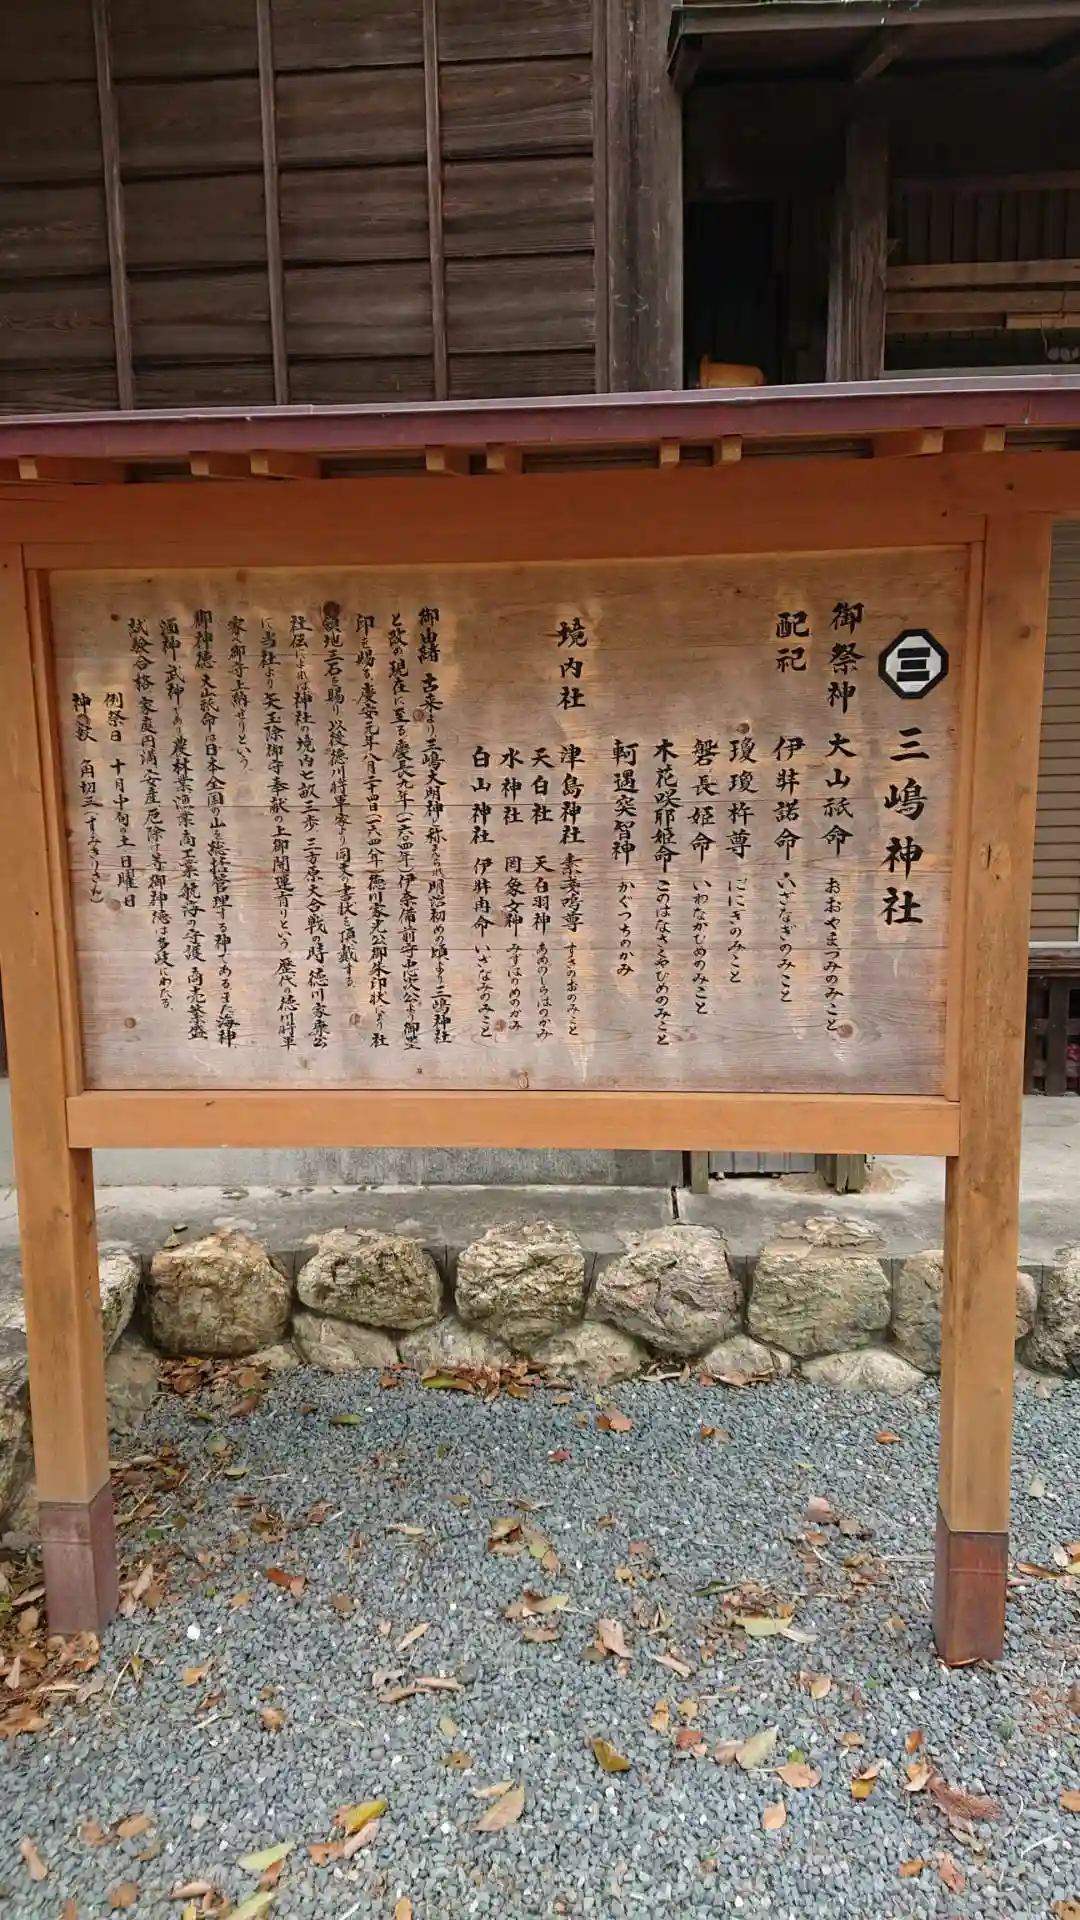 三 三嶋神社
御祭神 大山祇命 おおやまつみのみこと
配祀 伊弉諾命 いざなぎのみこと
瓊瓊杵尊 ににぎのみこと
磐長姫命 いわながひめのみこと
木花咲耶姫命 このはなさくやひめのみこと
軻遇突智神 かぐつちのかみ
境内社 津島神社 素戔嗚尊 すさのおのみこと
天白社 天白羽神 あめのしらはのかみ
水神社 罔象女神 みずはのめのかみ
白山神社 伊弉冉命 いざなみのみこと
御由緒 古来より三嶋大明神と称えられ明治初めの頃より三嶋神社
と改め現在に至る慶長九年(一六〇四年)伊奈備前守忠次公より御黒
印を賜る慶安元年八月二十四日(一六四八年)徳川家光公御朱印状により社
領地三石を賜り以後徳川将軍家より同末の書状を頂戴する
社伝によれば神社の境内七畝三歩三方原大合戦の時徳川家康公
に当社より矢玉除御守奉献の上御開運有りという歴代の徳川将軍
家へ御守上納せりという
御神徳 大山祇命は日本全国の山を総括管理する神であるまた海神
酒神武神であり農林業漁業商工業航海の守護商売繁盛
試験合格家庭円満安産厄除け等御神徳は多岐にわたる
例祭日 十月中旬の土日曜日
神紋 角切三(すみきりさん)